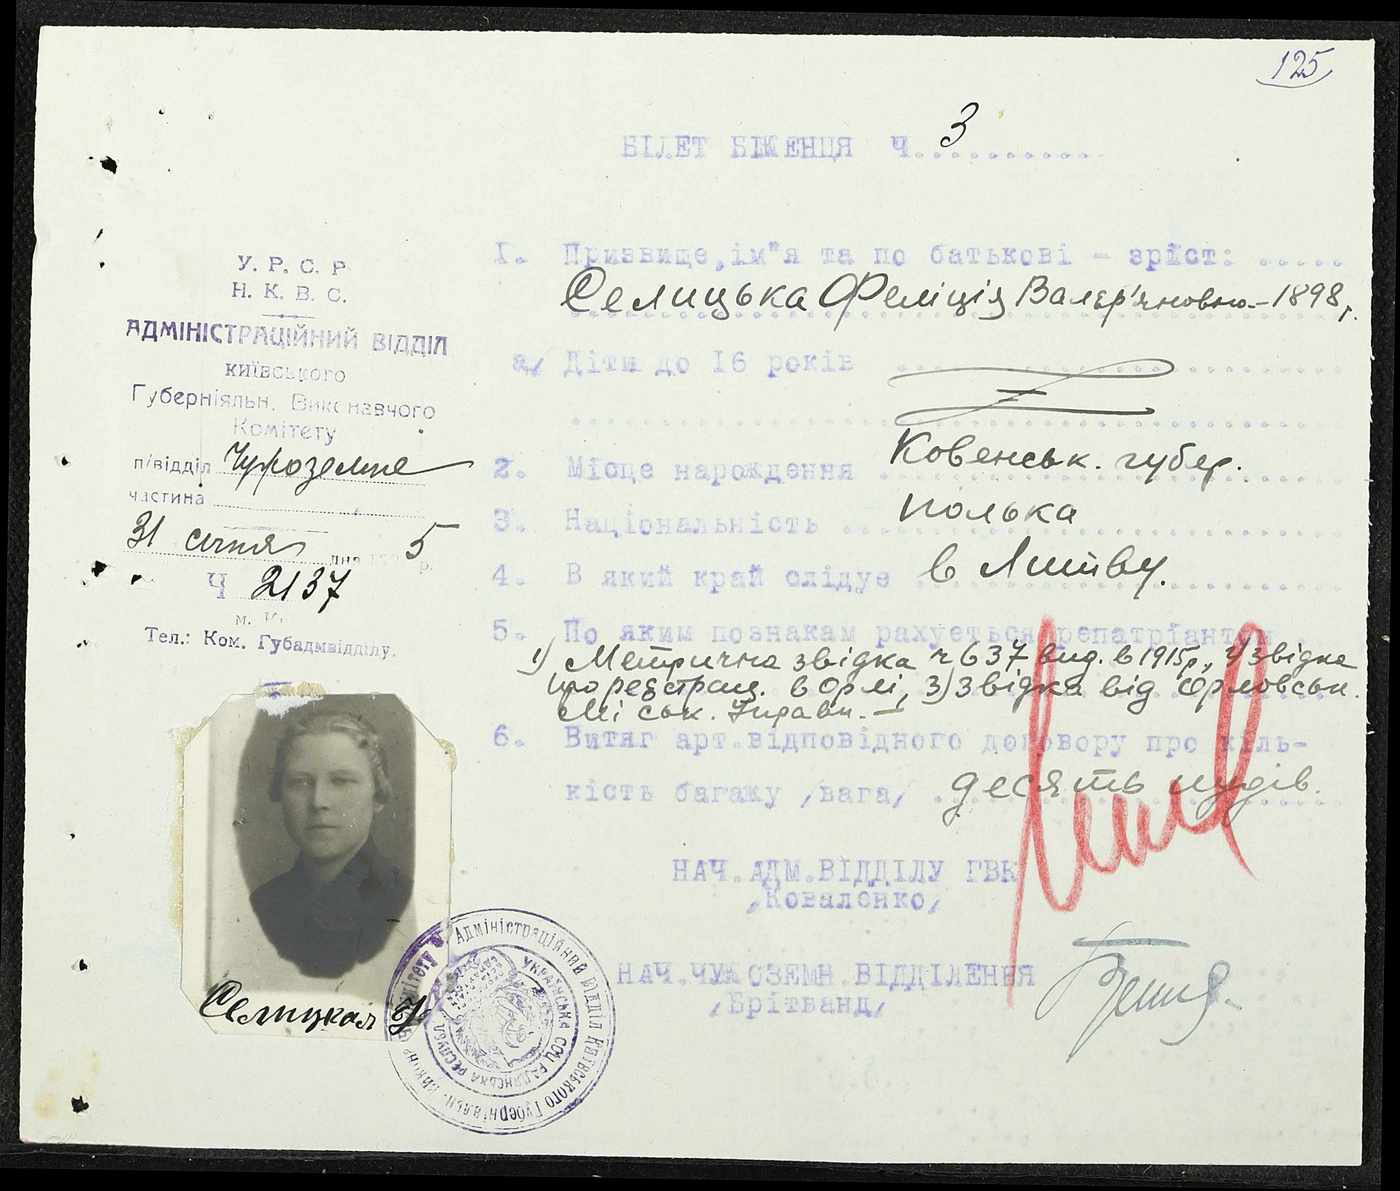 125
БІЛЕТ БІЖЕНЦЯ Ч. 3
У. Р. С. Р
Н. К. В. С.
АДМІНІСТРАЦІЙНИЙ ВІДДІЛ
київського
Губерніяльн. Виконавчого
Комітету
п/відділ Чужоземне
частина
31 січня дня 5 р.
Ч 2137
м. К
Тел.: Ком. Губадмвідділу.
І. Призвище, ім"я та по батькові - зріст:
Селицька Феліція Валер'яновна - 1898 г.
а/ Діти до І6 років
2. Місце нарождення Ковенськ. губер.
3. Національність полька
4. В який край слідує в Литву.
5. По яким познакам рахується репатріантом
1) Метрична звідка ч 637 вид. в 1915 р., 2) звідка
про реєстрац. в Орлі, 3) Звідка від Орловськ.
Міськ. Управи. -
6. Витяг арт. відповідного договору про кіль-
кість багажу /вага/ десять пудів.
НАЧ. АДМ. ВІДДІЛУ ГВК
/Коваленко/
НАЧ. ЧУЖОЗЕМН. ВІДДІЛЕННЯ
/Брітванд/
Селицкая
Адміністраційний Відділ Київського Губерніяльн.
УКРАЇНСЬКА СОЦ. РАДЯНСЬКА РЕСПУБЛ.